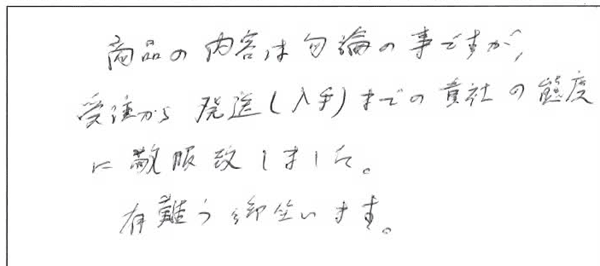 商品の内容は勿論の事ですが、
受注から発送(入手)までの貴社の態度
に敬服致しました。
有難う御坐います。